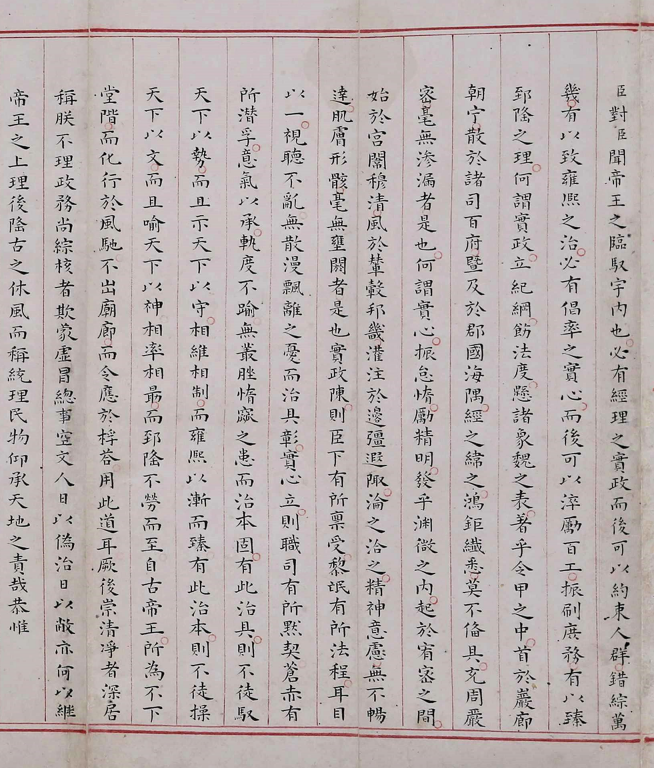 臣對臣聞帝王之臨馭宇内也必有經理之實政而後可以約束人群錯綜萬
幾有以致雍熙之治必有倡率之實心而後可以淬勵百工振刷庶務有以臻
郅隆之理何謂實政立紀綱飭法度懸諸象魏之表著乎令甲之中首於巖廊
朝宁散於諸司百府暨及於郡國海隅經之緯之鴻鉅纖悉莫不備具充周嚴
密毫無滲漏者是也何謂實心振怠惰勵精明發乎淵微之内起於宥密之間
始於宮闈穆清風於輦轂邦畿灌注於邊疆遐陬淪之洽之精神意慮無不暢
達肌膚形骸毫無壅閼者是也實政陳則臣下有所禀受黎氓有所法程耳目
以一視聽不亂無散漫飄離之憂而治具彰實心立則職司有所默契蒼赤有
所潛孚意氣以承軌度不踰無叢脞惰窳之患而治本固有此治具則不徒馭
天下以勢而且示天下以守相維相制而雍熙以漸而臻有此治本則不徒操
天下以文而且喻天下以神相率相最而郅隆不勞而至自古帝王所為不下
堂階而化行於風馳不出廟廊而令應於桴荅用此道耳厥後崇清凈者深居
稱朕不理政務尚綜核者欺蒙虚冒總事空文人日以偽治日以敝亦何以継
帝王之上理後隆古之休風而稱統理民物仰承天地之責哉恭惟